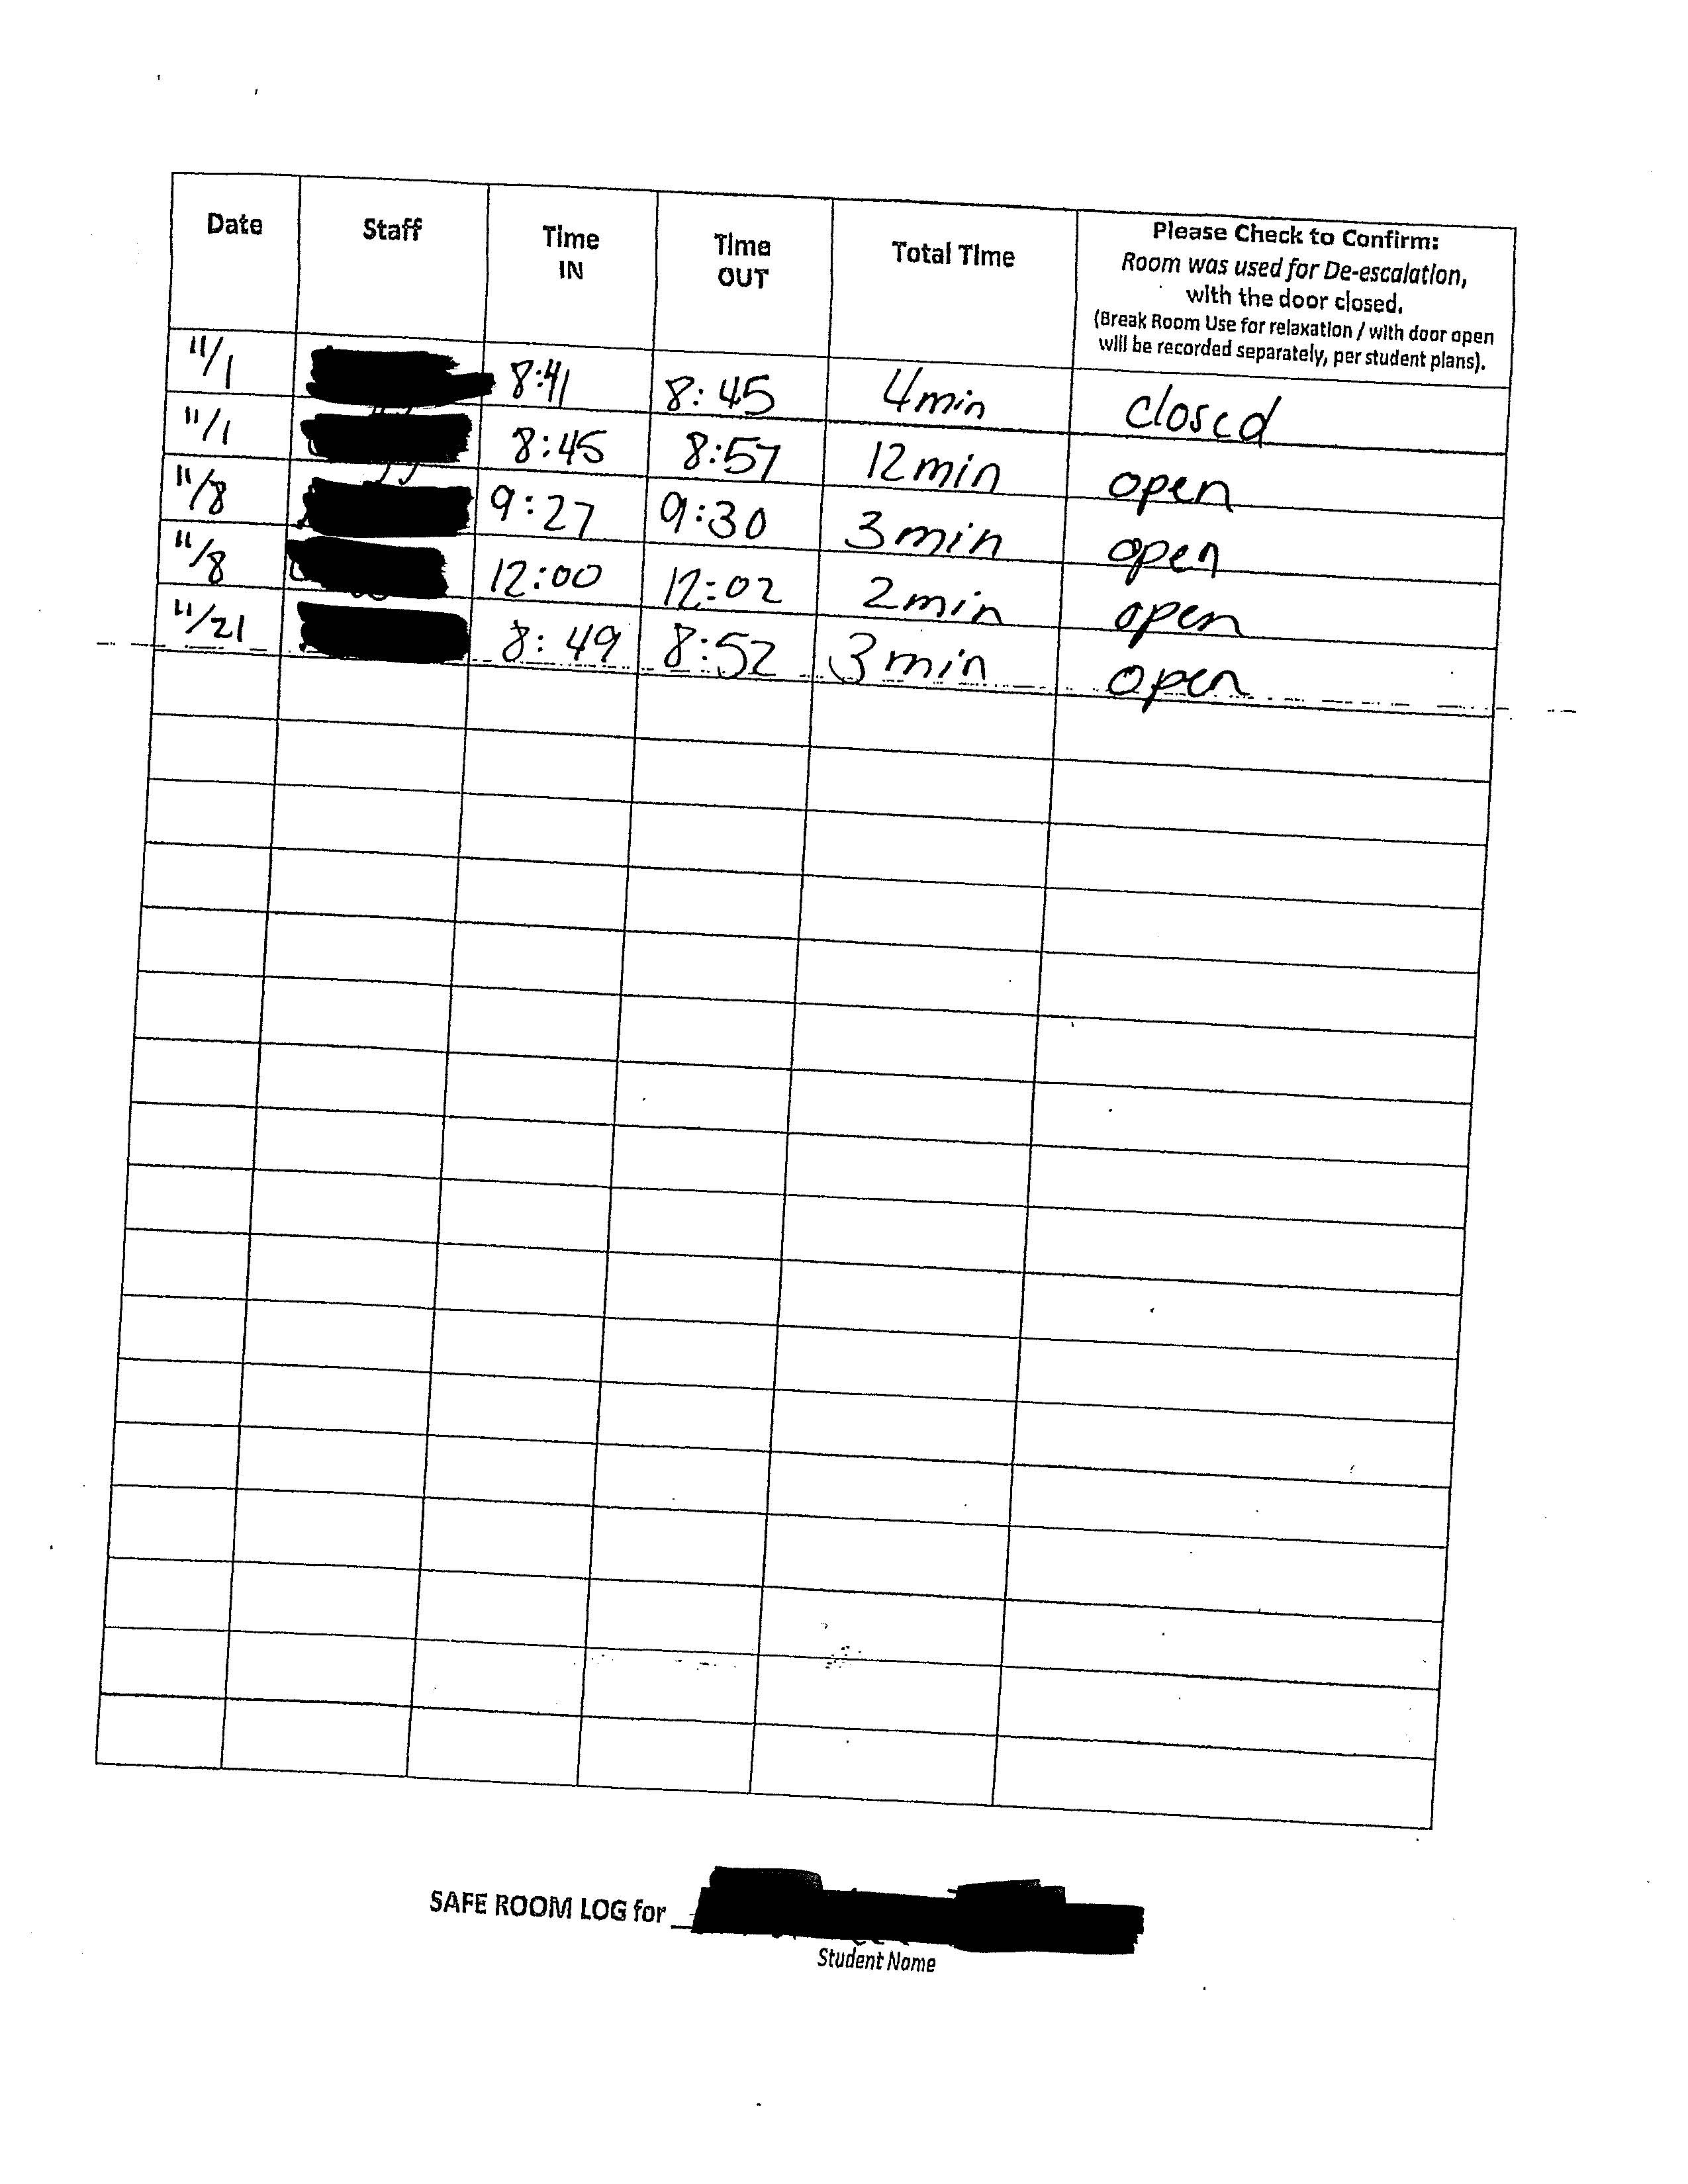 Date Staff Time IN Time OUT Total Time Please Check to Confirm:
Room was used for De-escalation,
with the door closed.
(Break Room Use for relaxation / with door open
will be recorded separately, per student plans).
11/1 8:41 8:45 4 min closed
11/1 8:45 8:57 12 min open
11/8 9:27 9:30 3 min open
11/8 12:00 12:02 2 min open
11/21 8:49 8:52 3 min open
SAFE ROOM LOG for
Student Name